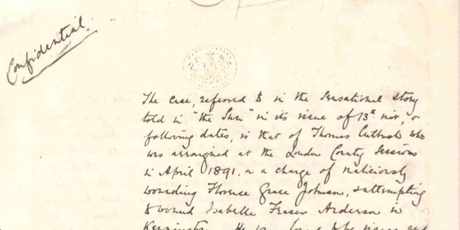 Confidential
The case, referred to in the sensational story
told in "the Sun" in its issue of 13th inst, &
following dates, is that of Thomas Cutbush who
was arraigned at the London County Sessions
in April 1891, on a charge of maliciously
wounding Florence Grace Johnson, & attempting
to wound Isabelle Fraser Anderson in
Kennington. He was found to be insane and